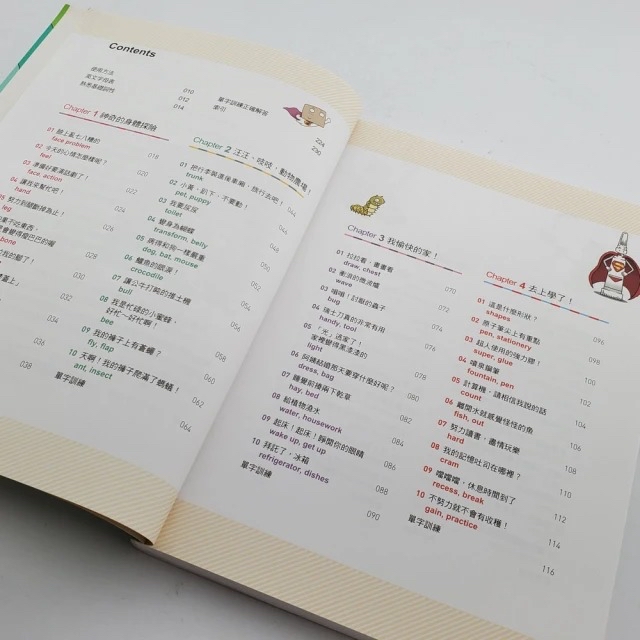 Contents
使用方法
英文字母表
熟悉基礎詞性
010
012
014
單字訓練正確解答
索引
224
230
Chapter 1 神奇的身體探險
01 臉上亂七八糟的
face problem
018
02 今天的心情怎麼樣呢？
feel
020
03 準備好要演話劇了！
face, action
022
04 讓我來幫忙吧！
hand
024
努力到腿斷掉為止！
leg
026
bone
028
030
032
034
036
038
Chapter 2 汪汪、吱吱，動物農場！
01 把行李裝進後車廂，旅行去吧！
trunk
044
02 小黃，趴下，不要動！
pet, puppy
046
03 我要尿尿
toilet
048
04 變身為蝴蝶
transform, belly
050
05 病得和狗一樣嚴重
dog, bat, mouse
052
06 鱷魚的眼淚！
crocodile
054
07 讓公牛打盹的推土機
bull
056
08 我是忙碌的小蜜蜂，
好忙～好忙啊！
bee
058
09 我的褲子上有蒼蠅？
fly, flap
060
10 天啊！我的褲子爬滿了螞蟻！
ant, insect
062
單字訓練
064
Chapter 3 我愉快的家！
01 拉拉看、畫畫看
draw, chest
070
02 衝浪的微波爐
wave
072
03 嗡嗡！討厭的蟲子
bug
074
04 瑞士刀真的非常有用
handy, tool
076
05 「光」逃家了！
家裡變得黑漆漆的
light
078
06 阿姨結婚那天要穿什麼好呢？
dress, bag
080
07 睡覺前捧兩下乾草
hay, bed
082
08 給植物澆水
water, housework
084
09 起床！起床！睜開你的眼睛
wake up, get up
086
10 拜託了，冰箱
refrigerator, dishes
088
單字訓練
090
Chapter 4 去上學了！
01 這是什麼形狀？
shapes
096
02 原子筆尖上有重點
pen, stationery
098
03 超人使用的強力膠！
super, glue
100
04 噴泉鋼筆
fountain, pen
102
05 計算機：請相信我說的話
count
104
06 離開水就感覺怪怪的魚
fish, out
106
07 努力讀書，盡情玩樂
hard
108
08 我的記憶吐司在哪裡？
cram
110
09 噹噹噹，休息時間到了
recess, break
112
10 不努力就不會有收穫！
gain, practice
114
單字訓練
116